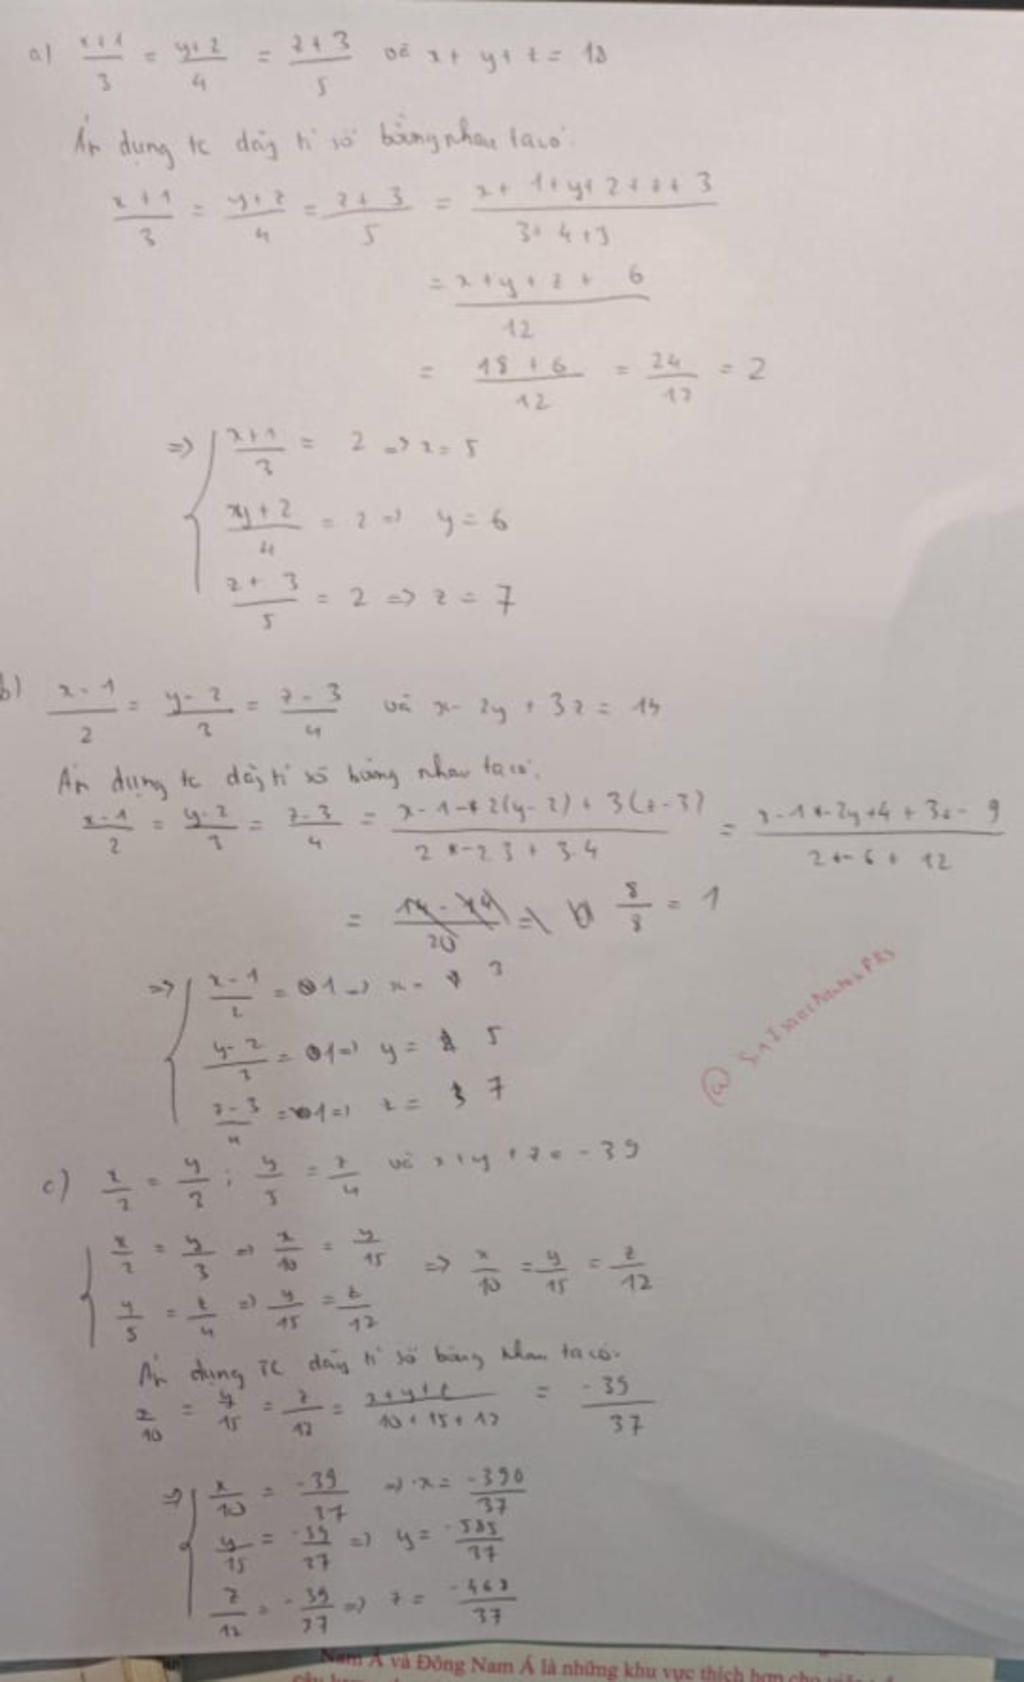 a) (x+1)/3 = (y+2)/4 = (z+3)/5 và x + y + z = 18
Áp dụng tc dãy tỉ số bằng nhau ta có:
(x+1)/3 = (y+2)/4 = (z+3)/5 = (x+1+y+2+z+3)/(3+4+5)
= (x+y+z+6)/12
= (18+6)/12 = 24/12 = 2
=> { (x+1)/3 = 2 => x = 5
(y+2)/4 = 2 => y = 6
(z+3)/5 = 2 => z = 7
b) (x-1)/2 = (y-2)/3 = (z-3)/4 và x - 2y + 3z = 14
Áp dụng tc dãy tỉ số bằng nhau ta có:
(x-1)/2 = (y-2)/3 = (z-3)/4 = (x-1-2(y-2)+3(z-3))/(2-2.3+3.4) = (x-1-2y+4+3z-9)/(2-6+12)
= 8/8 = 1
=> { (x-1)/2 = 1 => x = 3
(y-2)/3 = 1 => y = 5
(z-3)/4 = 1 => z = 7
@
c) x/2 = y/3 ; y/5 = z/4 và x+y+z = -39
{ x/2 = y/3 => x/10 = y/15 => x/10 = y/15 = z/12
y/5 = z/4 => y/15 = z/12
Áp dụng TC dãy tỉ số bằng nhau ta có:
x/10 = y/15 = z/12 = (x+y+z)/(10+15+12) = -39/37
=> { x/10 = -39/37 => x = -390/37
y/15 = -39/37 => y = -585/37
z/12 = -39/37 => z = -468/37
Nam Á và Đông Nam Á là những khu vực thích hợp cho